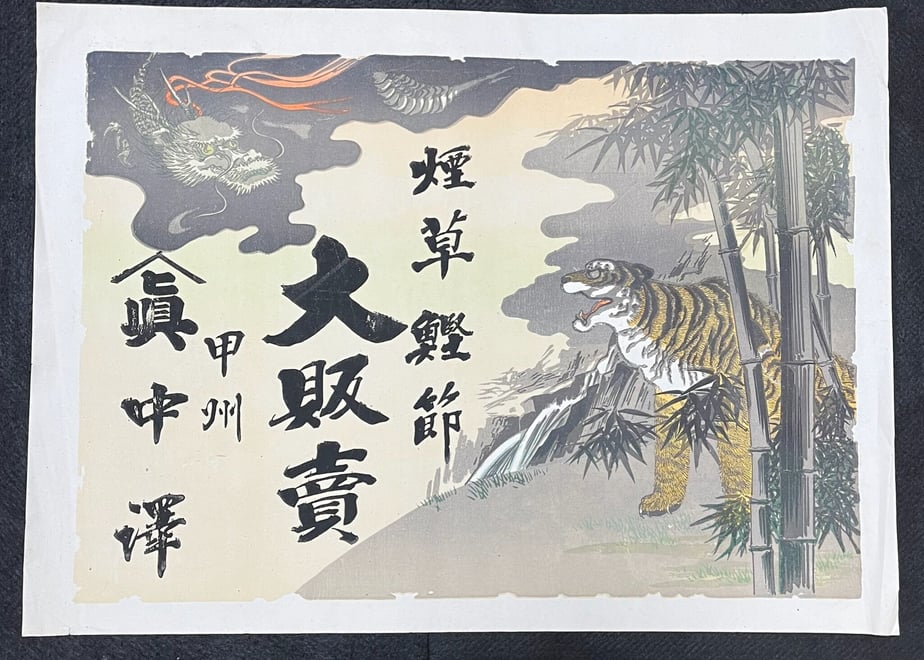 煙草鰹節
大販賣
甲州
眞中澤